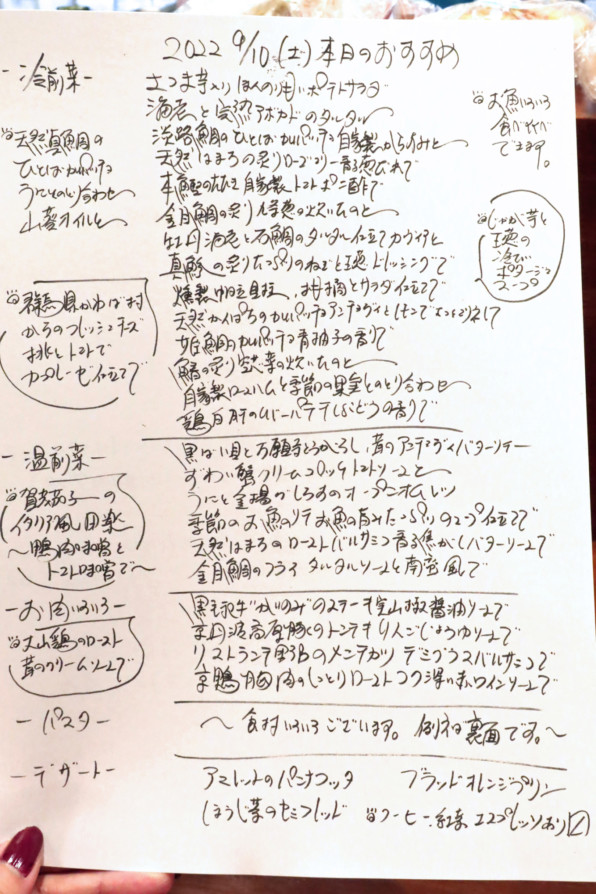 2022 9/10(土)本日のおすすめ
-冷前菜-
さつま芋入り ほんのり甘いポテトサラダ
海老と完熟アボカドのタルタル
淡路鯛のひとはだカルパッチョ 自家製からすみと
天然はまちの炙りローズマリー香る
本鰹のたたき 自家製トマトポン酢で
金目鯛の炙り 炊いたのと
牡丹海老と石鯛のタルタル仕立て キャヴィアと
真鯵の炙り たっぷりのねぎと玉葱ドレッシングで
燻製帆立貝柱、柑橘とサラダ仕立てで
天然かんぱちのカルパッチョ アンチョヴィとレモンで
姫鯛のカルパッチョ 青柚子の香りで
鰆の炙り 茄子の炊いたのと
自家製ロースハムと季節の果実とのとり合わせ
鶏白肝のレバーパテ ぶどうの香りで
天然真鯛の
ひとはだカルパッチョ
うにとのとり合わせ
山葵オイルと
群馬県かわば村
からのフレッシュチーズ
桃とトマトで
カプレーゼ仕立てで
お魚いろいろ
食べくらべ
できます。
じゃが芋と
玉葱の
冷たい
ポタージュ
スープ
-温前菜-
黒ばい貝と万願寺とうがらし、茸のアンチョヴィバターソテー
ずわい蟹クリームコロッケ トマトソースと
うにと釜揚げしらすのオープンオムレツ
季節のお魚のソテー お魚の旨みたっぷりのスープ仕立てで
天然はまちのロースト バルサミコ香る焦がしバターソースで
金目鯛のフライ タルタルソースと南蛮風で
賀茂茄子の
イタリア風田楽
～鴨肉味噌と
トマト味噌で～
-お肉いろいろ-
黒毛和牛かいのみのステーキ 実山椒醤油ソースで
京丹波高原豚のトンテキ りんごじょうゆソースで
リストランテ野呂のメンチカツ デミグラスバルサミコで
京鴨胸肉のしっとりロースト コク深い赤ワインソースで
大山鶏のロースト
茸のクリームソースで
-パスタ-
～食材いろいろございます。例えは裏面です。～
-デザート-
アマレットのパンナコッタ ブラッドオレンジプリン
ほうじ茶のセミフレッド コーヒー、紅茶 エスプレッソあり